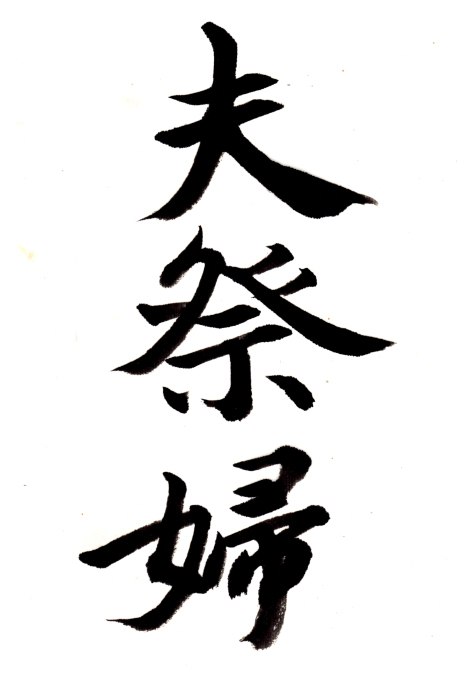 夫祭婦